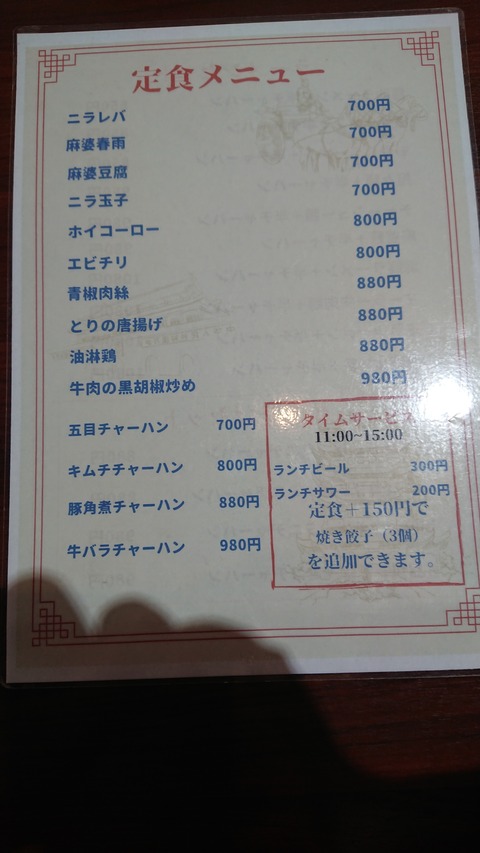 定食メニュー
ニラレバ 700円
麻婆春雨 700円
麻婆豆腐 700円
ニラ玉子 700円
ホイコーロー 800円
エビチリ 800円
青椒肉絲 880円
とりの唐揚げ 880円
油淋鶏 880円
牛肉の黒胡椒炒め 980円
五目チャーハン 700円
キムチチャーハン 800円
豚角煮チャーハン 880円
牛バラチャーハン 980円
タイムサービス
11:00~15:00
ランチビール 300円
ランチサワー 200円
定食+150円で
焼き餃子（3個）
を追加できます。